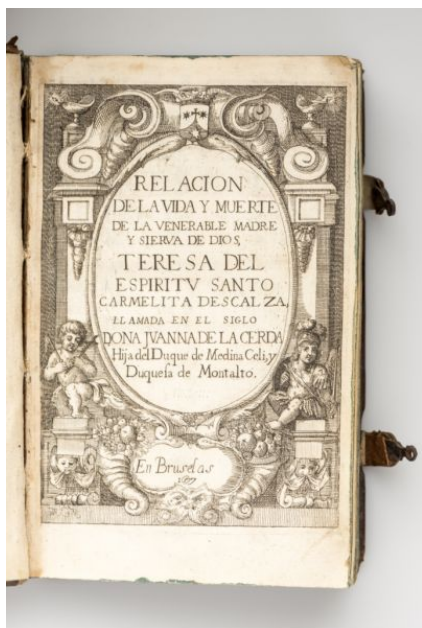 RELACION
DE LA VIDA Y MUERTE
DE LA VENERABLE MADRE
Y SIERVA DE DIOS,
TERESA DEL
ESPIRITV SANTO
CARMELITA DESCALZA,
LLAMADA EN EL SIGLO
DONA JVANNA DE LA CERDA
Hija del Duque de Medina Celi, y
Duquesa de Montalto.
En Bruselas